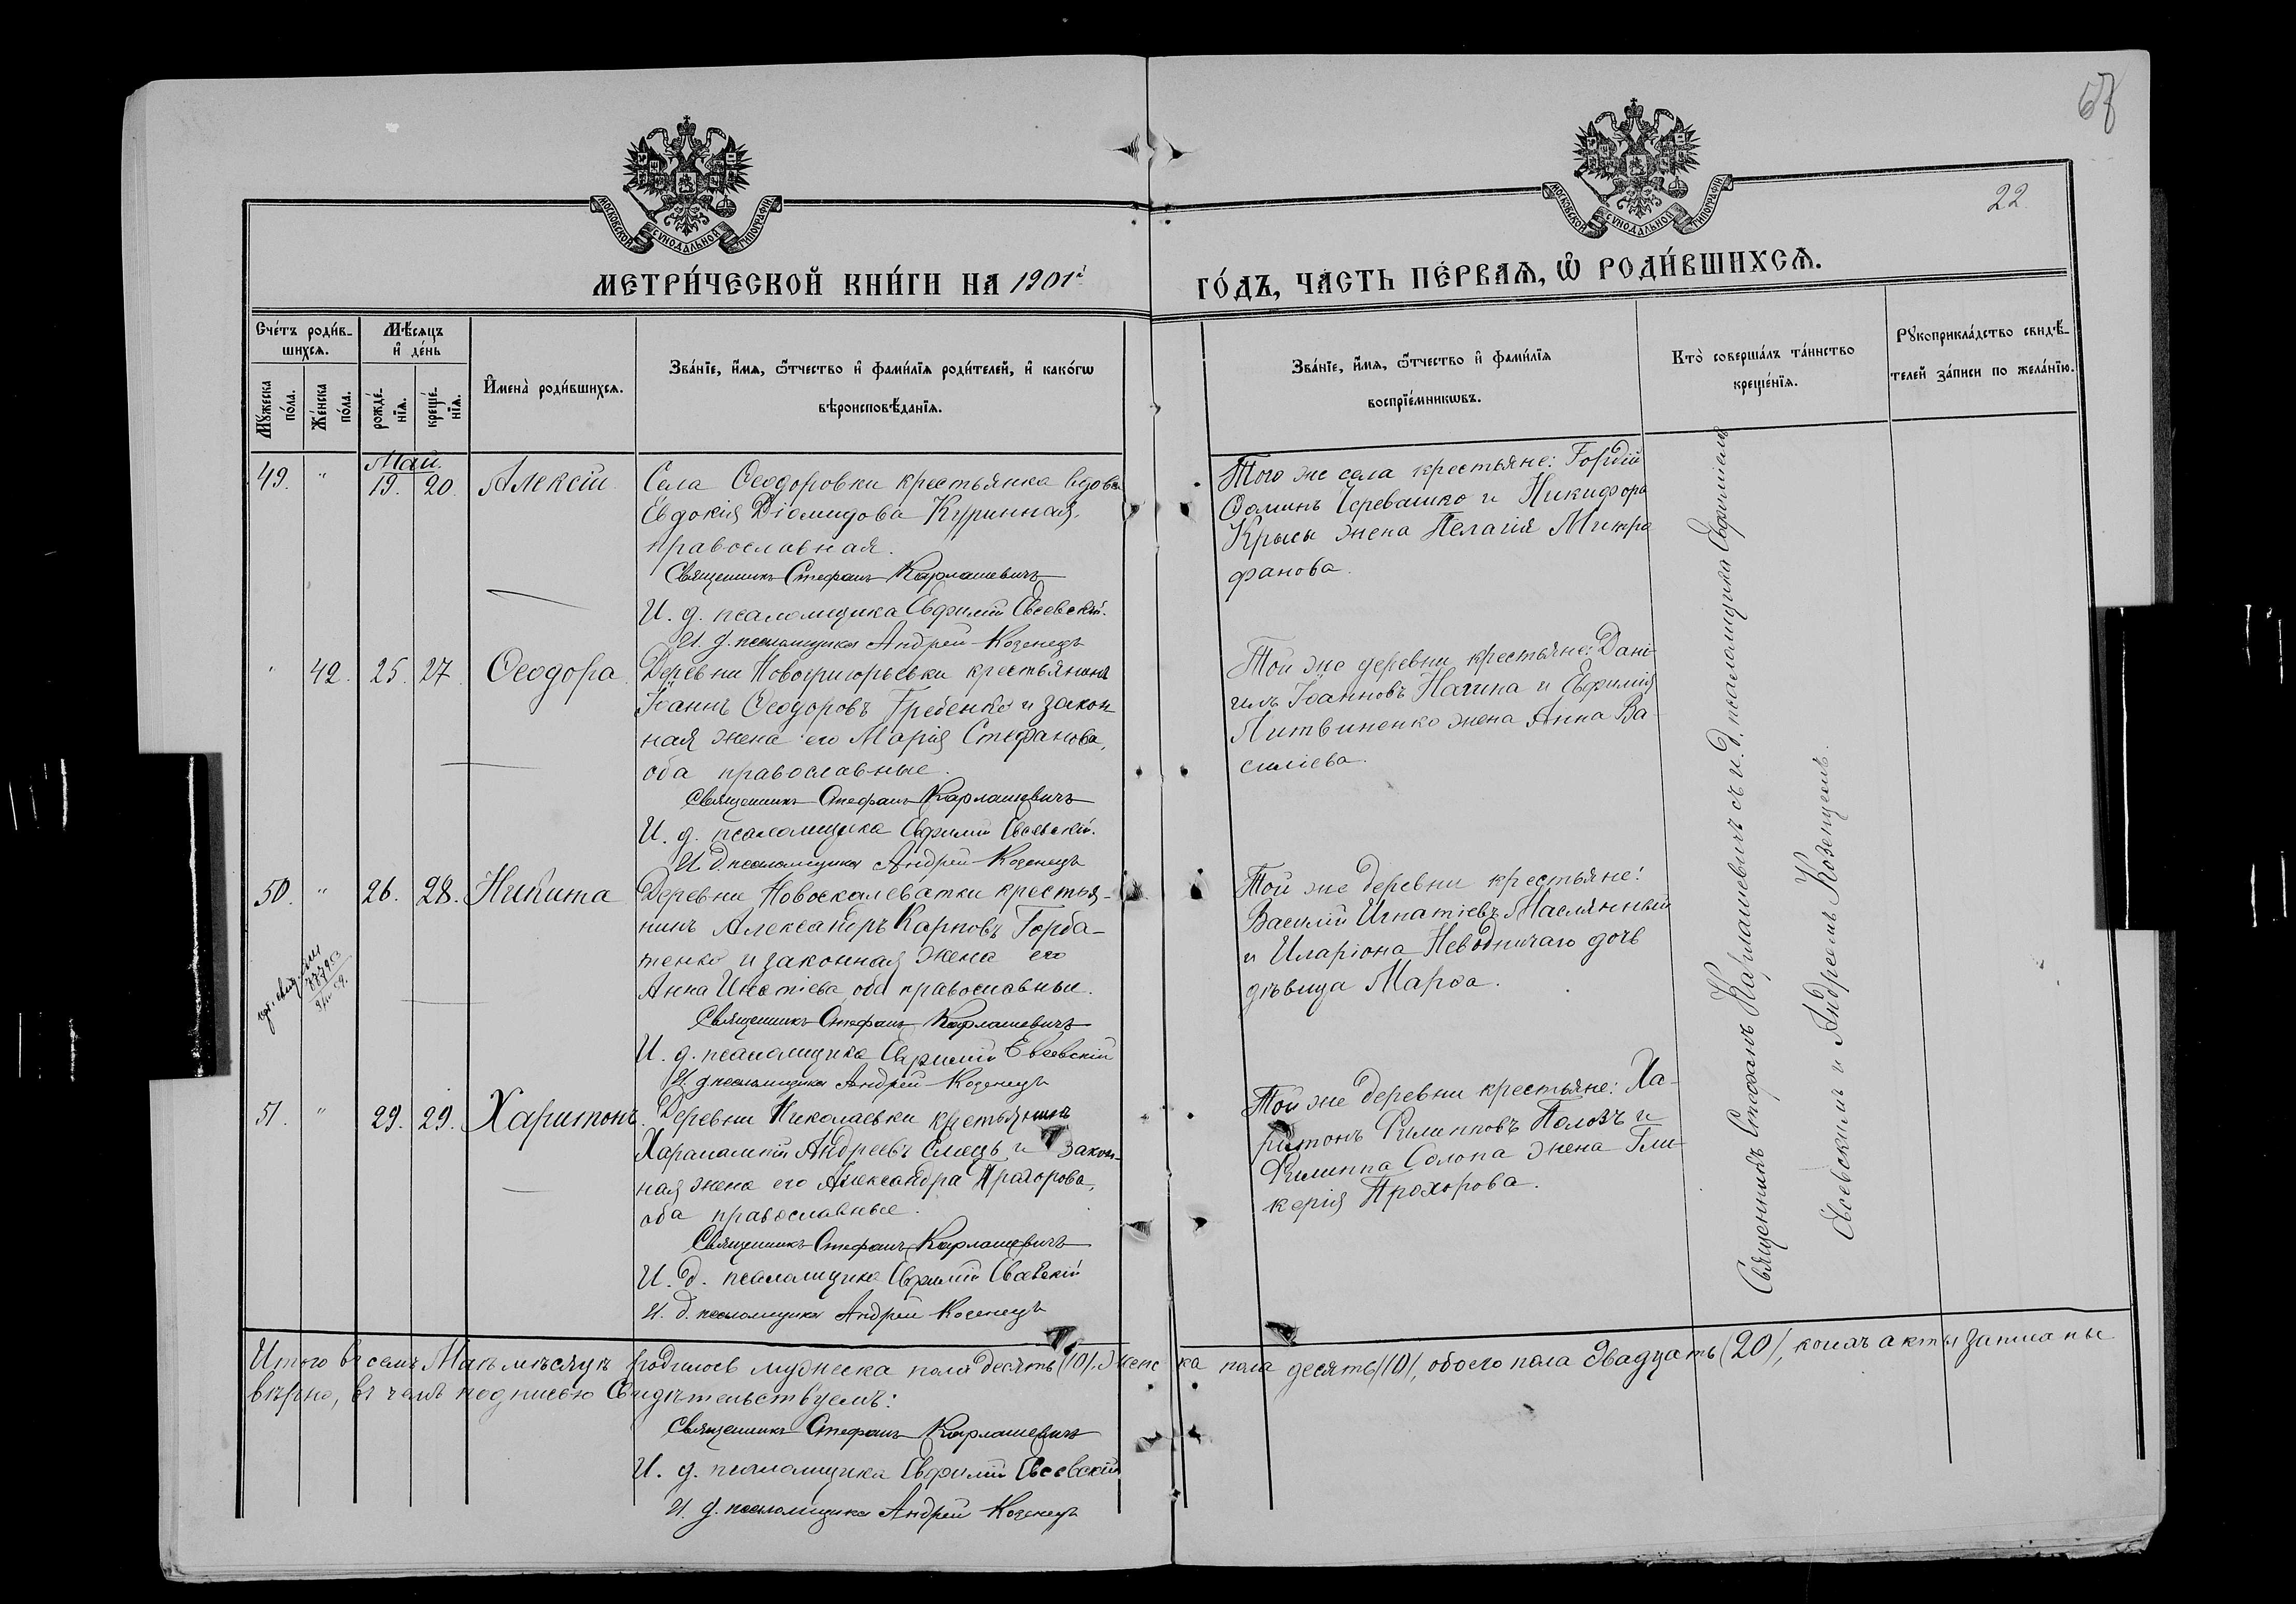 67
22
МОСКОВСКОЙ СУНОДАЛЬНОЙ ТИПОГРАФІИ
МОСКОВСКОЙ СУНОДАЛЬНОЙ ТИПОГРАФІИ
МЕТРИ́ЧЕСКОЙ КНИ́ГИ НА 1901й
ГО́ДЪ, ЧА́СТЬ ПЕ́РВАѦ, Ѡ҆ РОДИ́ВШИХСѦ.
Сче́тъ роди́в-
шихсѧ.
Мꙋ́жеска по́ла.
Же́нска по́ла.
Мѣ́сѧцъ
и҆ де́нь
рожде́-
нїѧ.
креще́-
нїѧ.
И҆мена̀ роди́вшихсѧ.
Зва́нїе, и҆́мѧ, ѻ҆́тчество и҆ фами́лїѧ роди́телей, и҆ како́гѡ
вѣроисповѣ́данїѧ.
Зва́нїе, и҆́мѧ, ѻ҆́тчество и҆ фами́лїѧ
воспрїе́мникѡвъ.
Кто̀ соверша́лъ та́инство
креще́нїѧ.
Рꙋкоприкла́дство свидѣ́-
телей за́писи по жела́нїю.
Май.
49. " 19. 20. Алексій
Села Ѳеодоровки крестьянка вдова
Евдокія Діомидова Куринная,
православная.
Священникъ Стефанъ Карлашевичъ
И. д. псаломщика Евфимій Евсевскій.
И. д. псаломщика Андрей Козенецъ
Того же села крестьяне: Гордій
Ѳоминъ Черевашко и Никифора
Крысы жена Пелагія Митро
фанова.
" 42. 25. 27. Ѳеодора
Деревни Новогригорьевки крестьянинъ
Іоаннъ Ѳеодоровъ Гребенко и закон
ная жена его Марія Стефанова,
оба православные.
Священникъ Стефанъ Карлашевичъ
И. д. псаломщика Евфимій Евсевскій.
И. д. псаломщика Андрей Козенецъ
Той же деревни крестьяне: Дані-
илъ Іоанновъ Нагина и Евфимія
Литвиненко жена Анна Ва-
силіева.
50. " 26. 28. Никита
Деревни Новоскалеватки крестья-
нинъ Александръ Карповъ Горба-
тенко и законная жена его
Анна Игнатіева, оба православные.
Священникъ Стефанъ Карлашевичъ
И. д. псаломщика Евфимій Евсевскій
И. д. псаломщика Андрей Козенецъ
Той же деревни крестьяне:
Василій Игнатіевъ Маслянный
и Иларіона Неводничаго дочь
дѣвица Марѳа.
51. " 29. 29. Харитонъ
Деревни Николаевки крестьянинъ
Харалампій Андреевъ Емецъ и закон-
ная жена его Александра Прохорова,
оба православные.
Священникъ Стефанъ Карлашевичъ
И. д. псаломщика Евфимій Евсевскій
И. д. псаломщика Андрей Козенецъ
Той же деревни крестьяне: Ха-
ритонъ Филипповъ Полозъ и
Филиппа Солопа жена Гли-
керія Прохорова.
Священникъ Стефанъ Карлашевичъ съ и. д. псаломщика Евфиміемъ
Евсевскимъ и Андреемъ Козенцемъ.
Итого въ семъ Маѣ мѣсяцѣ родилось мужеска пола десять (10), женска пола десять (10), обоего пола двадцать (20), коихъ акты записаны
вѣрно, въ чемъ подписью свидѣтельствуемъ:
Священникъ Стефанъ Карлашевичъ
И. д. псаломщика Евфимій Евсевскій
И. д. псаломщика Андрей Козенецъ